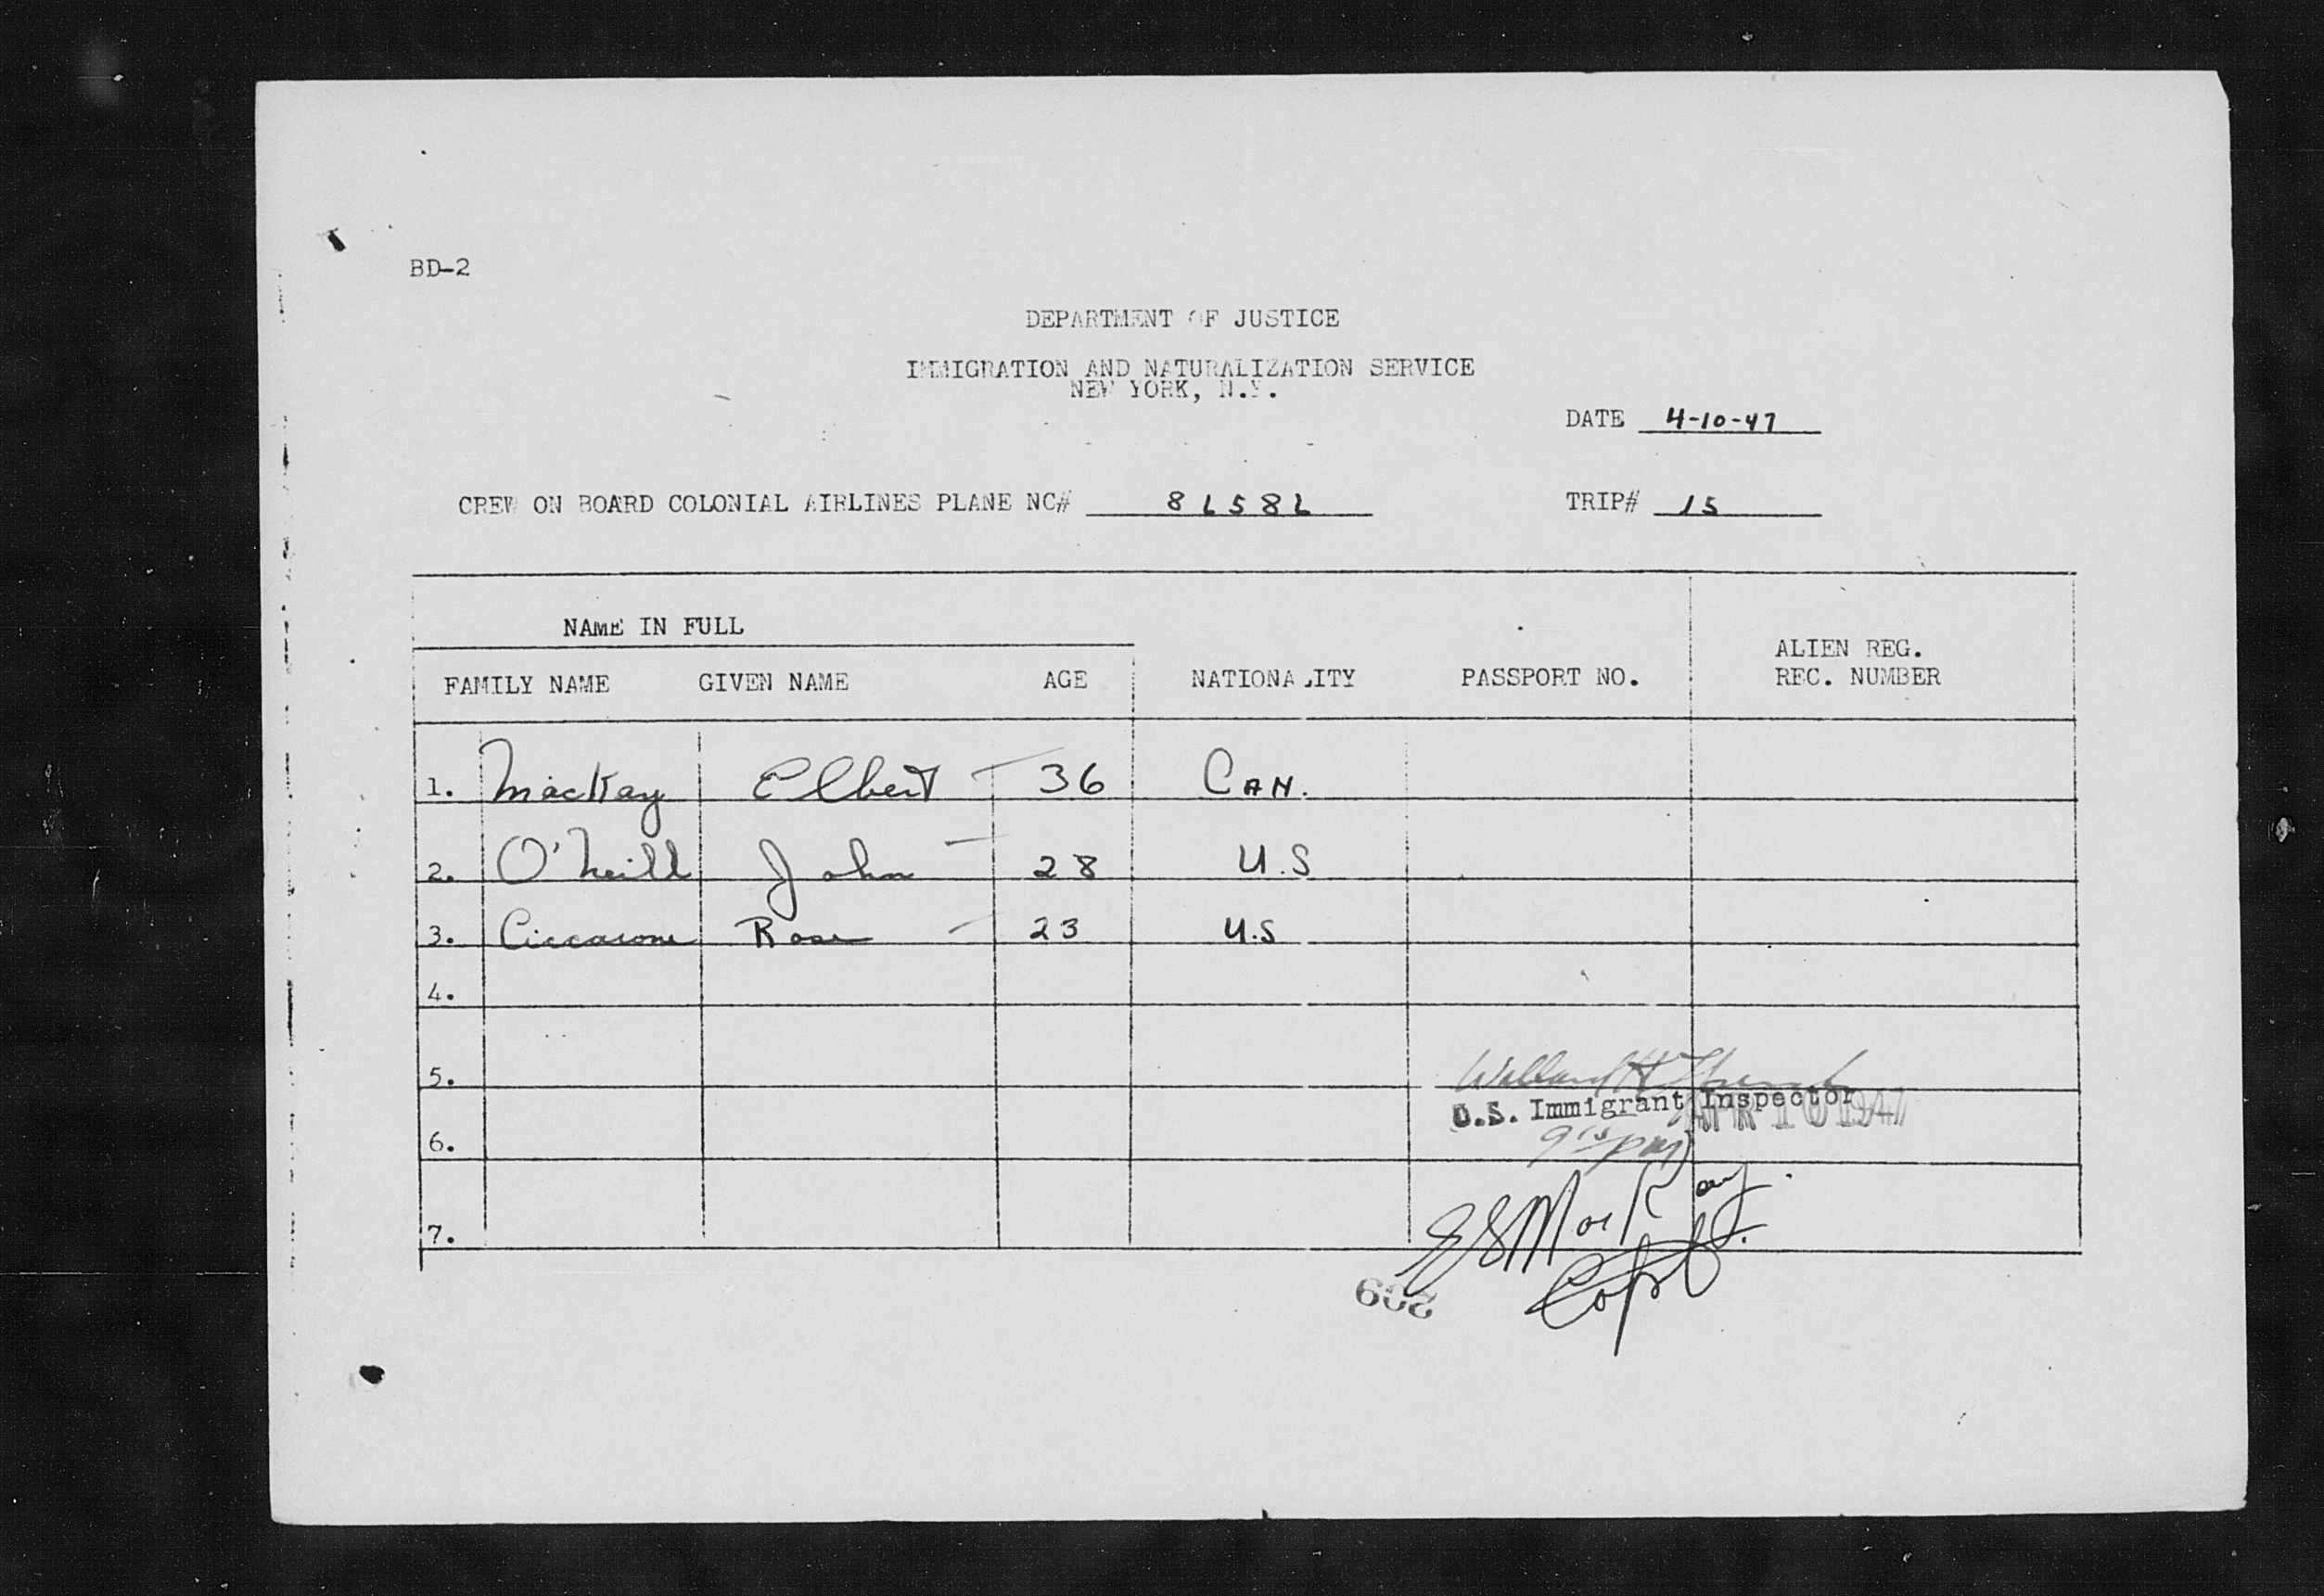 BD-2
DEPARTMENT OF JUSTICE
IMMIGRATION AND NATURALIZATION SERVICE
NEW YORK, N.Y.
DATE 4-10-47
CREW ON BOARD COLONIAL AIRLINES PLANE NC# TRIP# 15
NAME IN FULL
FAMILY NAME GIVEN NAME AGE NATIONALITY PASSPORT NO. ALIEN REG. REC. NUMBER
1. MacKay Elbert 36 CAN.
2. O'Neill John 28 U.S
3. Ciccarone Rose 23 U.S
4.
5.
U.S. Immigrant Inspector APR 10 1947
6. 9 15 PM
7. MacKay
Capt.